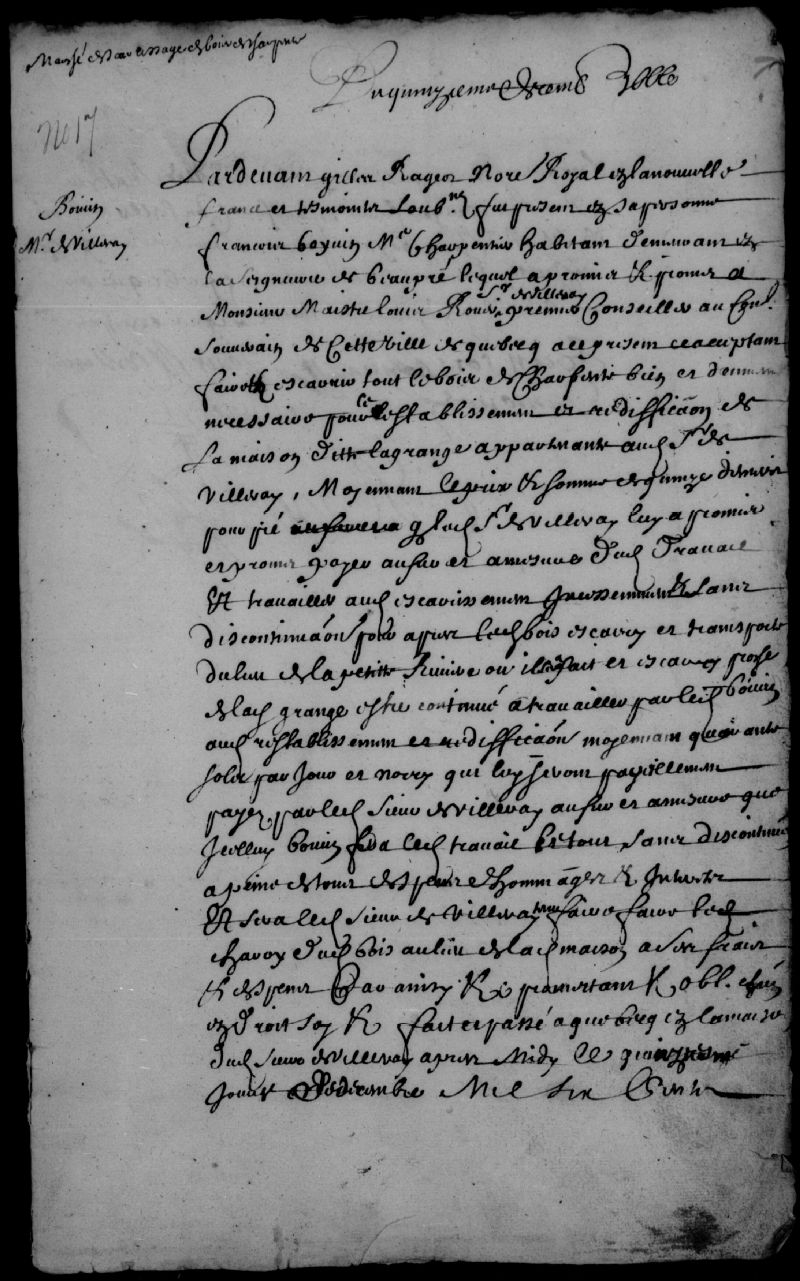 Marché d'escarissage de bois de charpente
Du quinzieme decemb 1666
No 17
Pardevant gilles Rageot Notre Royal en la nouvelle
france et tesmoins soubz. fut present en sa personne
Boivin
Mr de Villeray
francois boyvin Me Charpentier habitant demeurant en
la Seigneurie de beaupré lequel a promis & promet a
Sr de villeray
Monsieur Maistre louis Rouer premier Conseiller au Conl.
Souverain de Cette Ville de quebecq a ce present et acceptant
faire & escarir tout le bois de Charpente bien et deument
necessaire pour le restablissement et redifficaon de
la maison ditte lagrange appartenante aud Sr de
Villeray, Moyennant le prix & somme de quinze deniers
pour pié q led Sr de Villeray luy a promis
et promet payer au fur et a mesure dud Travail
Et travailler aud escarissement Incessamment & sans
discontinuaon pour apres led bois escary et transporté
du lieu de la petite Riviere ou il fait et escary proche
de lad grange estre continué a travailler par led boivin
aud restablissement et redifficaon moyennant quarante
solz par Jour et nory qui luy seront pareillement
payez par led Sieur de Villeray au fur et a mesure que
Icelluy boivin fera led travail le tout sans discontinuer
a peine de tous despens dhommages & Interetz
Et sera led Sieur de Villeray tenu faire faire led
charoy dud bois au lieu de lad maison a ses frais
& despens Car ainsy &c promettant &c obl. chun
en droit soy &c fait et passé a quebecq en la maison
dud Sieur de Villeray apres Midy le quinzieme
Jour de decembre Mil six Cents